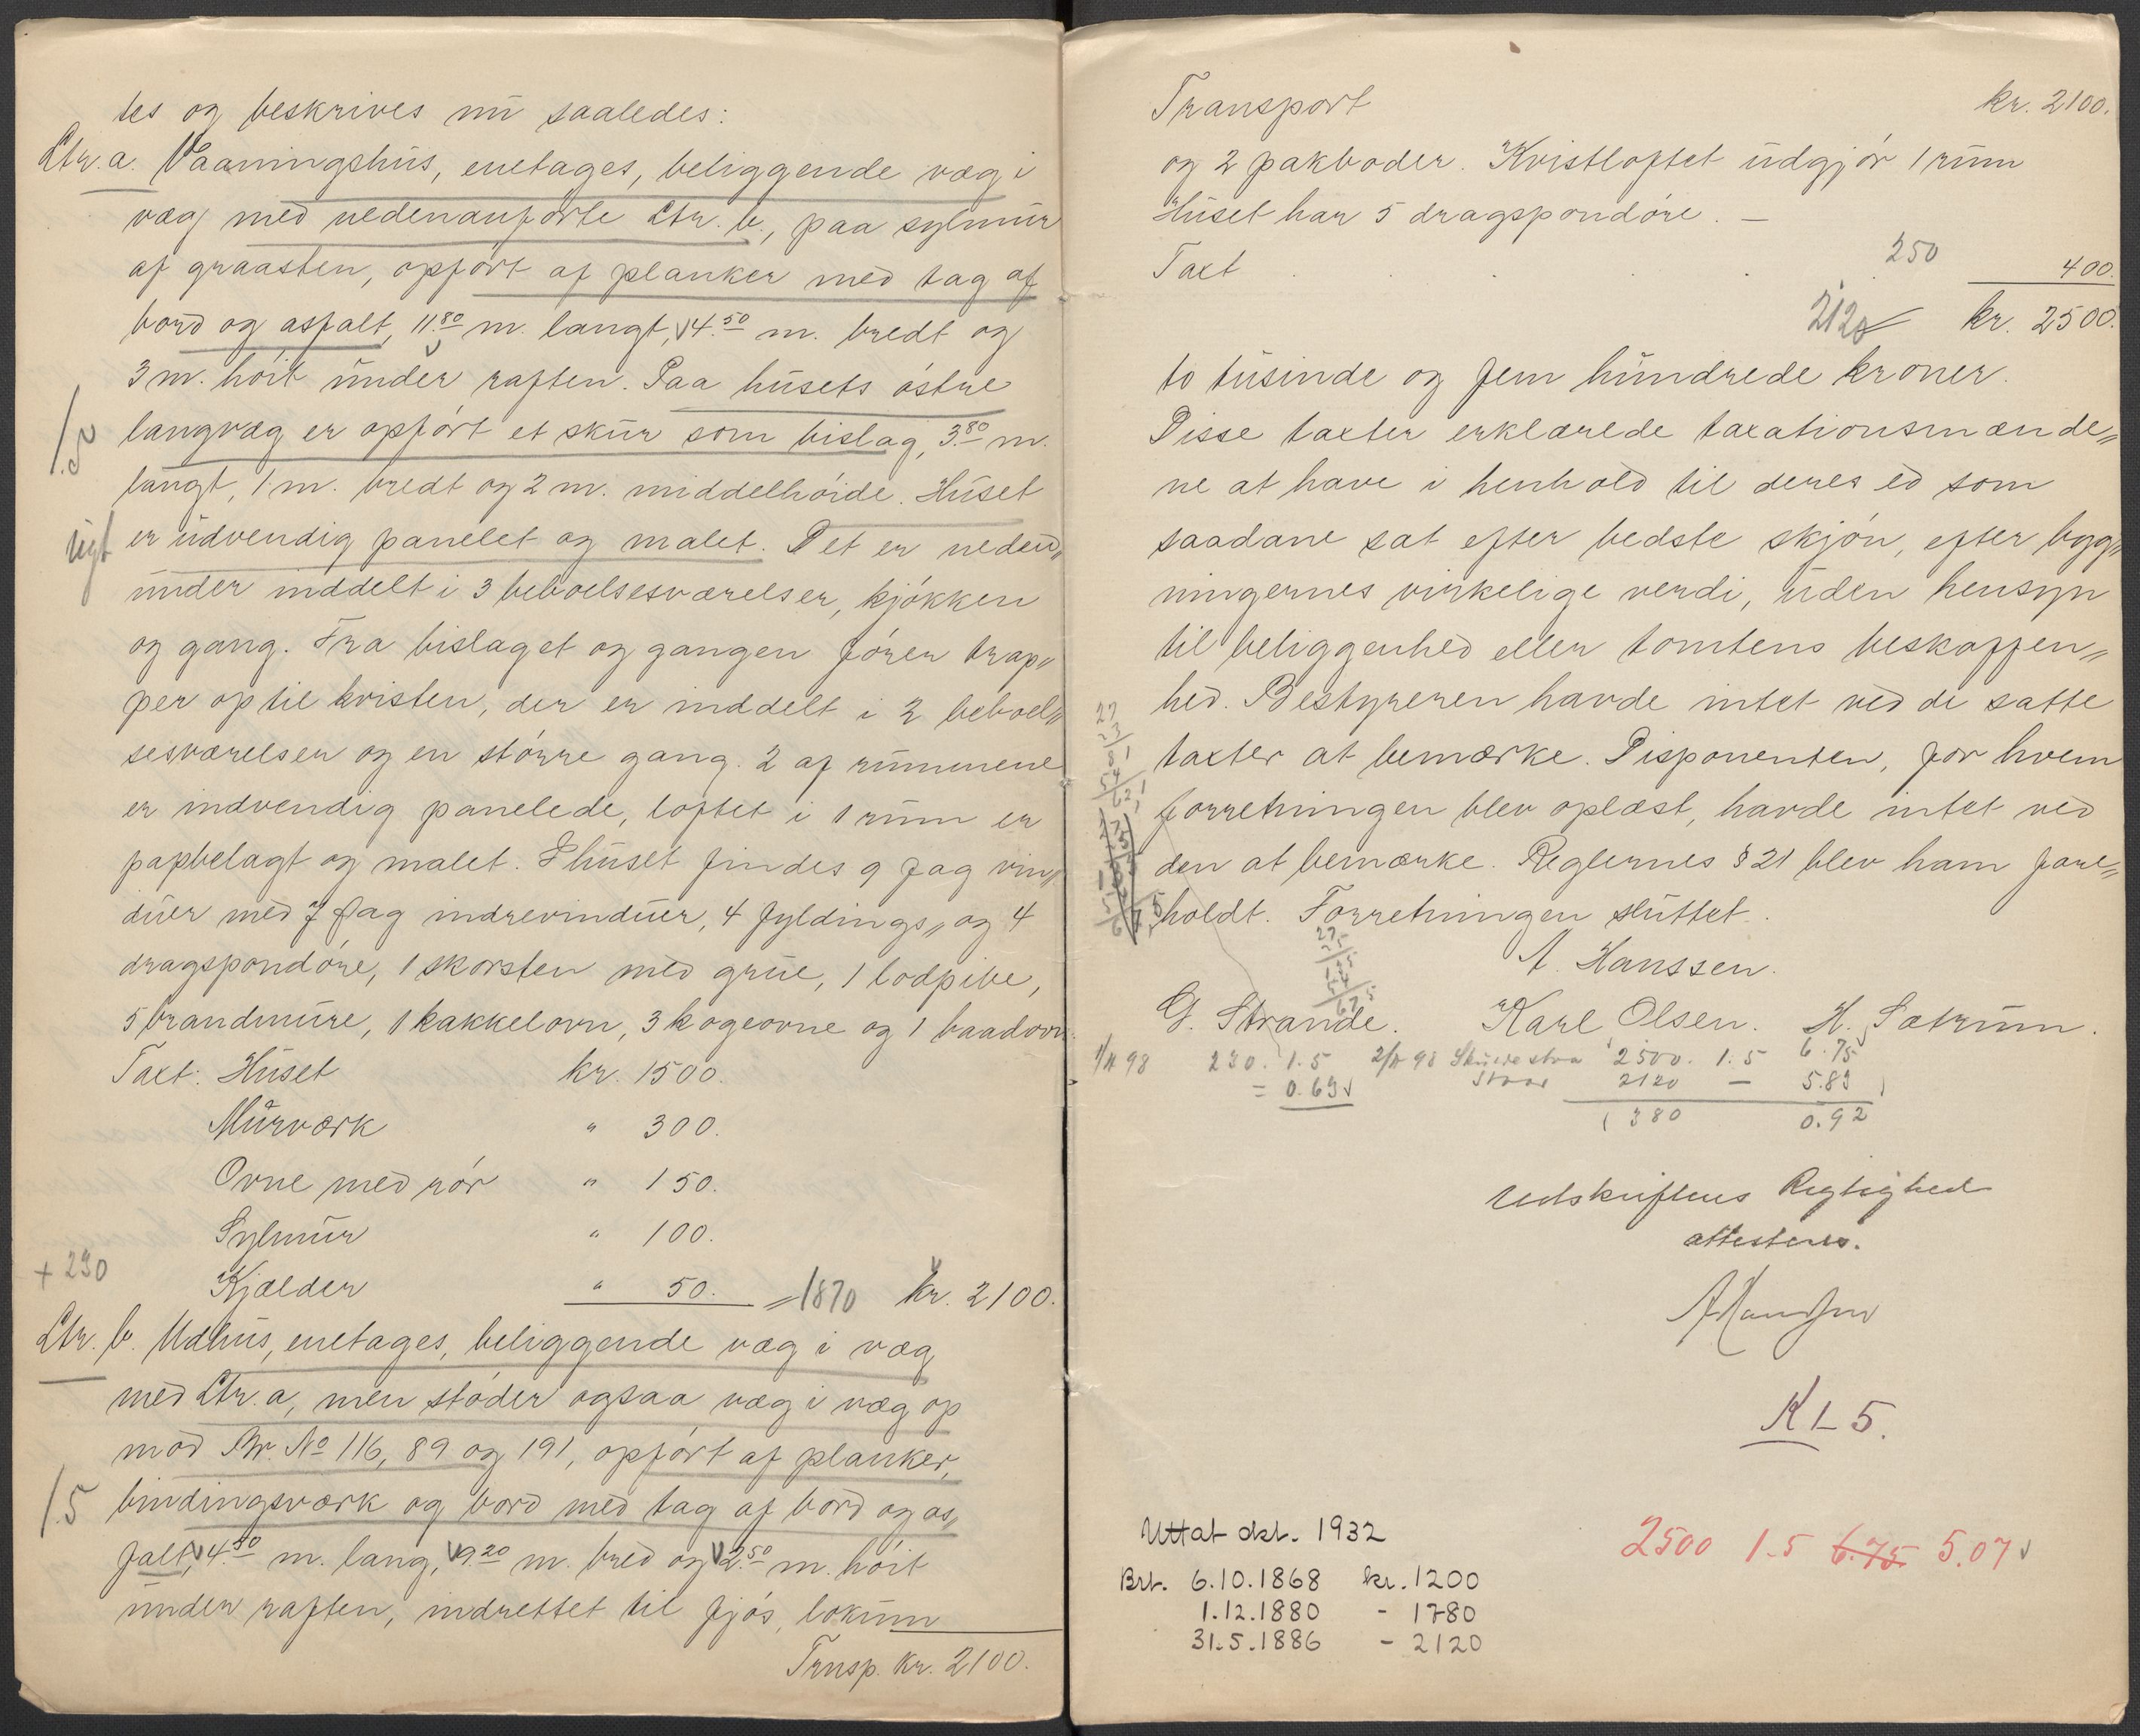 tes og beskrives nu saaledes:
Ltr. a. Vaaningshus, enetages, beliggende væg i
væg med nedenanførte Ltr. b., paa sylmur
af graasten, opført af planker med tag af
bord og asfalt, 11.80 m. langt, 4.50 m. bredt og
3 m. høit under raften. Paa husets østre
1.5
langvæg er opført et skur som bislag, 3.80 m.
langt, 1 m. bredt og 2 m. middelhøide. Huset
er udvendig panelet og malet. Det er neden„
under inddelt i 3 beboelsesværelser, kjøkken
og gang. Fra bislaget og gangen fører trap„
per op til kvisten, der er inddelt i 2 beboel„
sesværelser og en større gang. 2 af rummene
er indvendig panelede, loftet i 1 rum er
papbelagt og malet. I huset findes 9 fag vin„
duer med 7 fag indrevinduer, 4 fyldings„ og 4
dragspondøre, 1 skorsten med grue, 1 lodpibe,
5 brandmure, 1 kakkelovn, 3 kogeovne og 1 baadovn.
Taxt: Huset kr. 1500.
Murværk " 300.
Ovne med rør " 150.
Sylmur " 100.
+ 230
Kjælder " 50. = 1870 kr. 2100.
Ltr. b. Udhus, enetages, beliggende væg i væg
med Ltr. a, men støder ogsaa væg i væg op
mod Br. No 116, 89 og 191, opført af planker,
1.5
bindingsværk og bord med tag af bord og as„
falt, 4.50 m. lang, 9.20 m. bred og 2.50 m. høit
under raften, indrettet til fjøs, lokum
Trnsp. kr. 2100.
Transport kr. 2100.
og 2 pakboder. Kvistloftet udgjør 1 rum
Huset har 5 dragspondøre. —
Taxt . . . 250 400.
2120 kr. 2500.
to tusinde og fem hundrede kroner.
Disse taxter erklærede taxationsmænde„
ne at have i henhold til deres ed som
saadane sat efter bedste skjøn, efter byg„
ningernes virkelige verdi, uden hensyn
til beliggenhed eller tomtens beskaffen„
hed. Bestyreren havde intet ved de satte
taxter at bemærke. Disponenten, for hvem
forretningen blev oplæst, havde intet ved
den at bemærke. Reglernes § 21 blev ham fore„
holdt. Forretningen sluttet.
A. Hanssen.
G. Strande. Karl Olsen. H. Sætrum.
230. 1.5 2500. 1.5 6.75
= 0.69 2120 — 5.83
380 0.92
Udskriftens Rigtighed
attesteres.
AHanssen
Kl 5.
Uttat okt. 1932
2500 1.5 6.75 5.07
Brt. 6.10.1868 kr. 1200
1.12.1880 - 1780
31.5.1886 - 2120